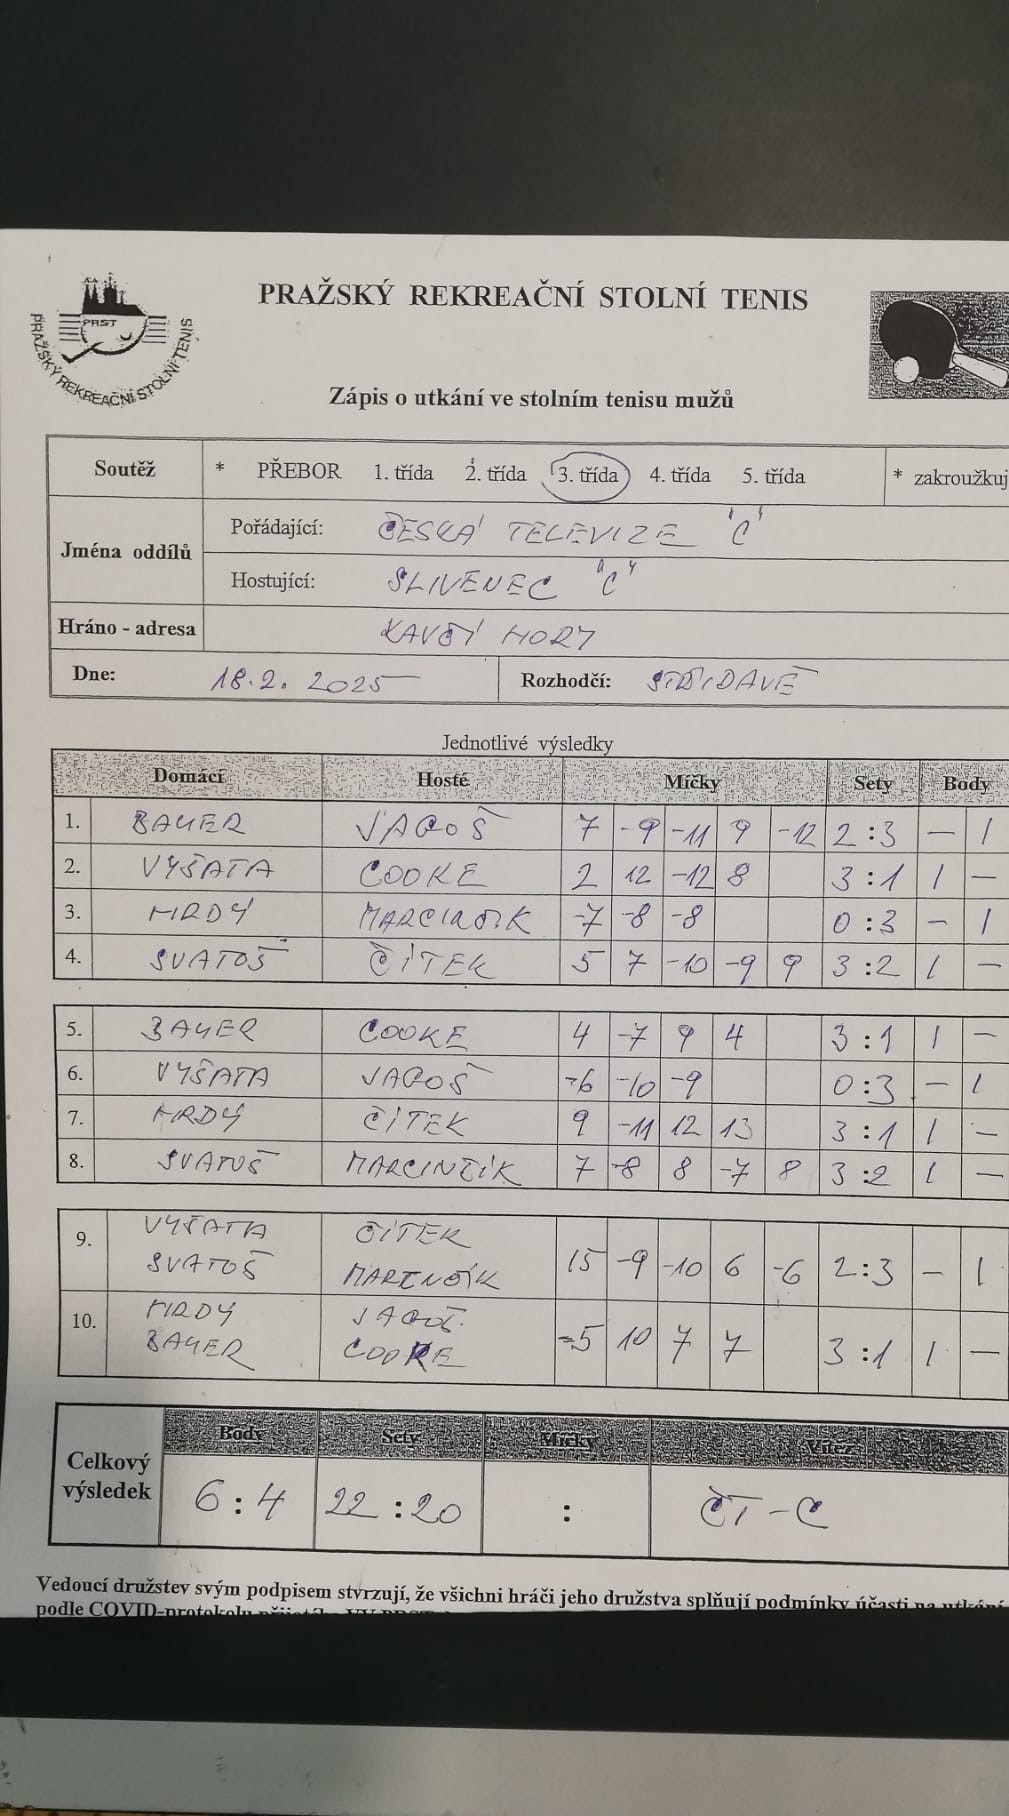 PRAŽSKÝ REKREAČNÍ STOLNÍ TENIS
PRST
PRAŽSKÝ REKREAČNÍ STOLNÍ TENIS
Zápis o utkání ve stolním tenisu mužů
Soutěž * PŘEBOR 1. třída 2. třída 3. třída 4. třída 5. třída * zakroužkuj
Jména oddílů
Pořádající: ČESKÁ TELEVIZE "C"
Hostující: SLIVENEC "C"
Hráno - adresa KAVČÍ HORY
Dne: 18.2. 2025 Rozhodčí: STŘÍDAVĚ
Jednotlivé výsledky
Domácí Hosté Míčky Sety Body
1. BAUER JAGOŠ 7 -9 -11 9 -12 2:3 — 1
2. VYŠATA COOKE 2 12 -12 8 3:1 1 —
3. HRDÝ MARCINČÍK -7 -8 -8 0:3 — 1
4. SVATOŠ ČÍTEK 5 7 -10 -9 9 3:2 1 —
5. BAUER COOKE 4 -7 9 4 3:1 1 —
6. VYŠATA JAGOŠ -6 -10 -9 0:3 — 1
7. HRDÝ ČÍTEK 9 -11 12 13 3:1 1 —
8. SVATOŠ MARCINČÍK 7 -8 8 -7 8 3:2 1 —
9. VYŠATA ČÍTEK
SVATOŠ MARCINČÍK 15 -9 -10 6 -6 2:3 — 1
10. HRDÝ JAGOŠ
BAUER COOKE -5 10 7 7 3:1 1 —
Body Sety Míčky Vítěz
Celkový výsledek 6:4 22:20 : ČT-C
Vedoucí družstev svým podpisem stvrzují, že všichni hráči jeho družstva splňují podmínky účasti na utkání
podle COVID-protokolu